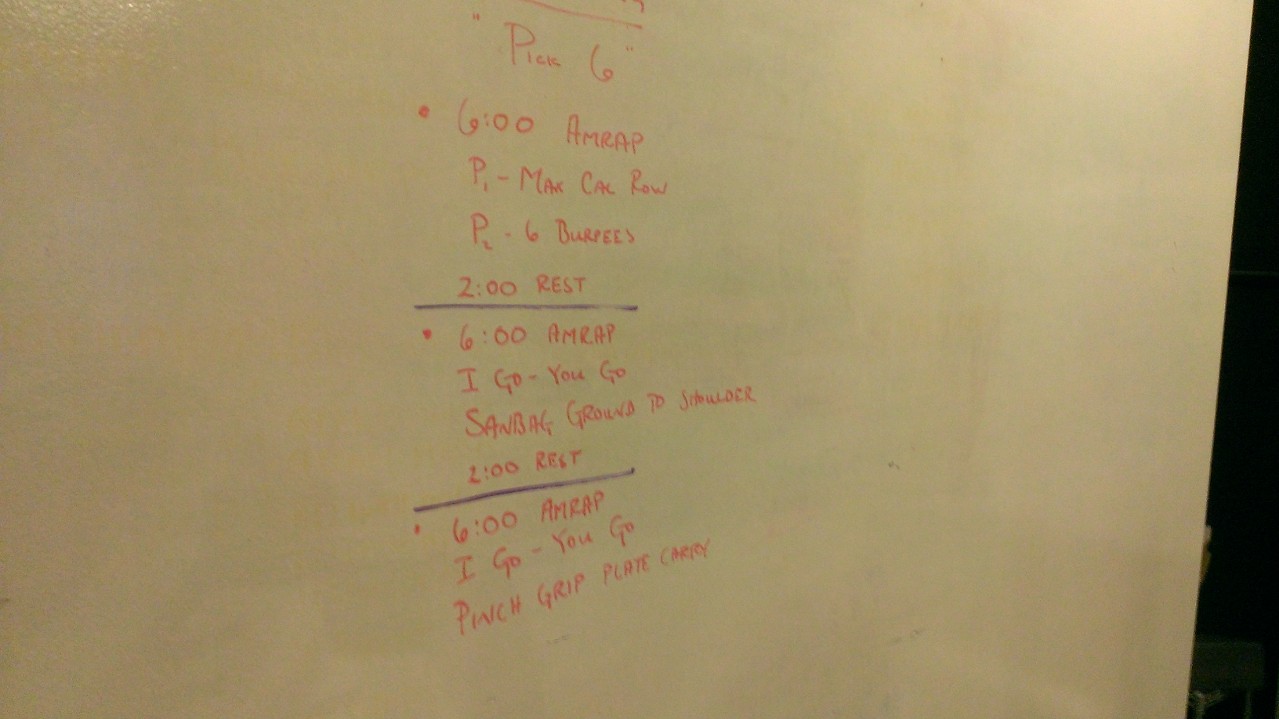 "Pick 6"
• 6:00 AMRAP
P1 - MAX CAL ROW
P2 - 6 BURPEES
2:00 REST
• 6:00 AMRAP
I GO - YOU GO
SANBAG GROUND TO SHOULDER
2:00 REST
• 6:00 AMRAP
I GO - YOU GO
PINCH GRIP PLATE CARRY